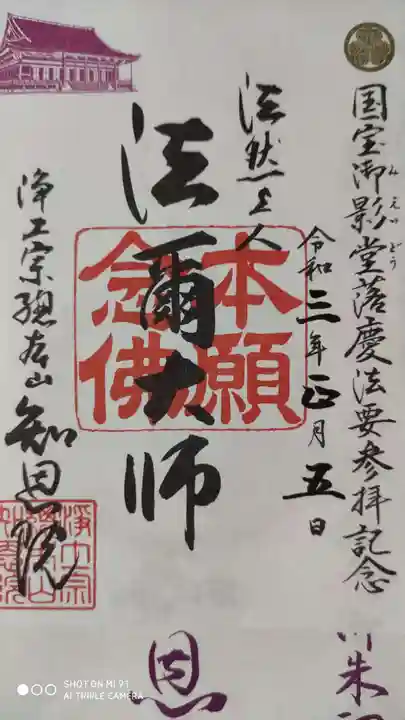 国宝御影堂落慶法要参拝記念
みえいどう
令和三年正月五日
法然上人
法爾大師
本願
念佛
浄土宗総本山
知恩院
浄土宗
総本山
知恩院
恩
朱
SHOT ON MI 9T
AI TRIPLE CAMERA